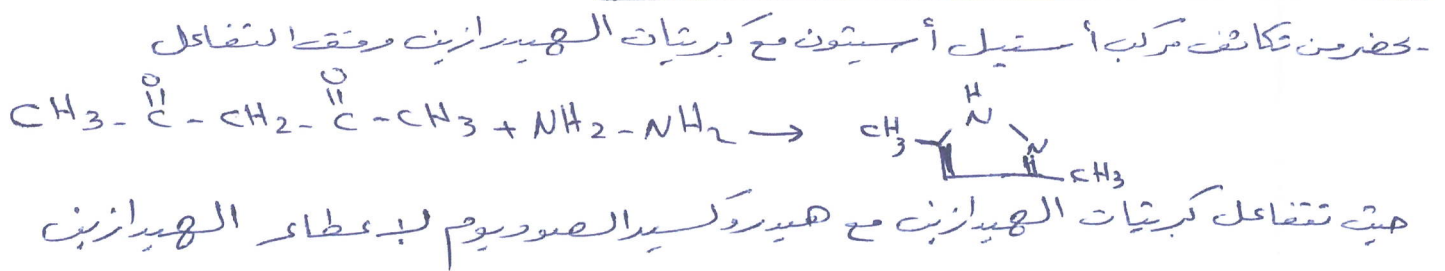 - يحضر من تكاثف مركب أستيل أسيتون مع كبريتات الهيدرازين وفق التفاعل
CH3 - C(=O) - CH2 - C(=O) - CH3 + NH2 - NH2 →
H
N
CH3
N
CH3
حيث تتفاعل كبريتات الهيدرازين مع هيدروكسيد الصوديوم لإعطاء الهيدرازين